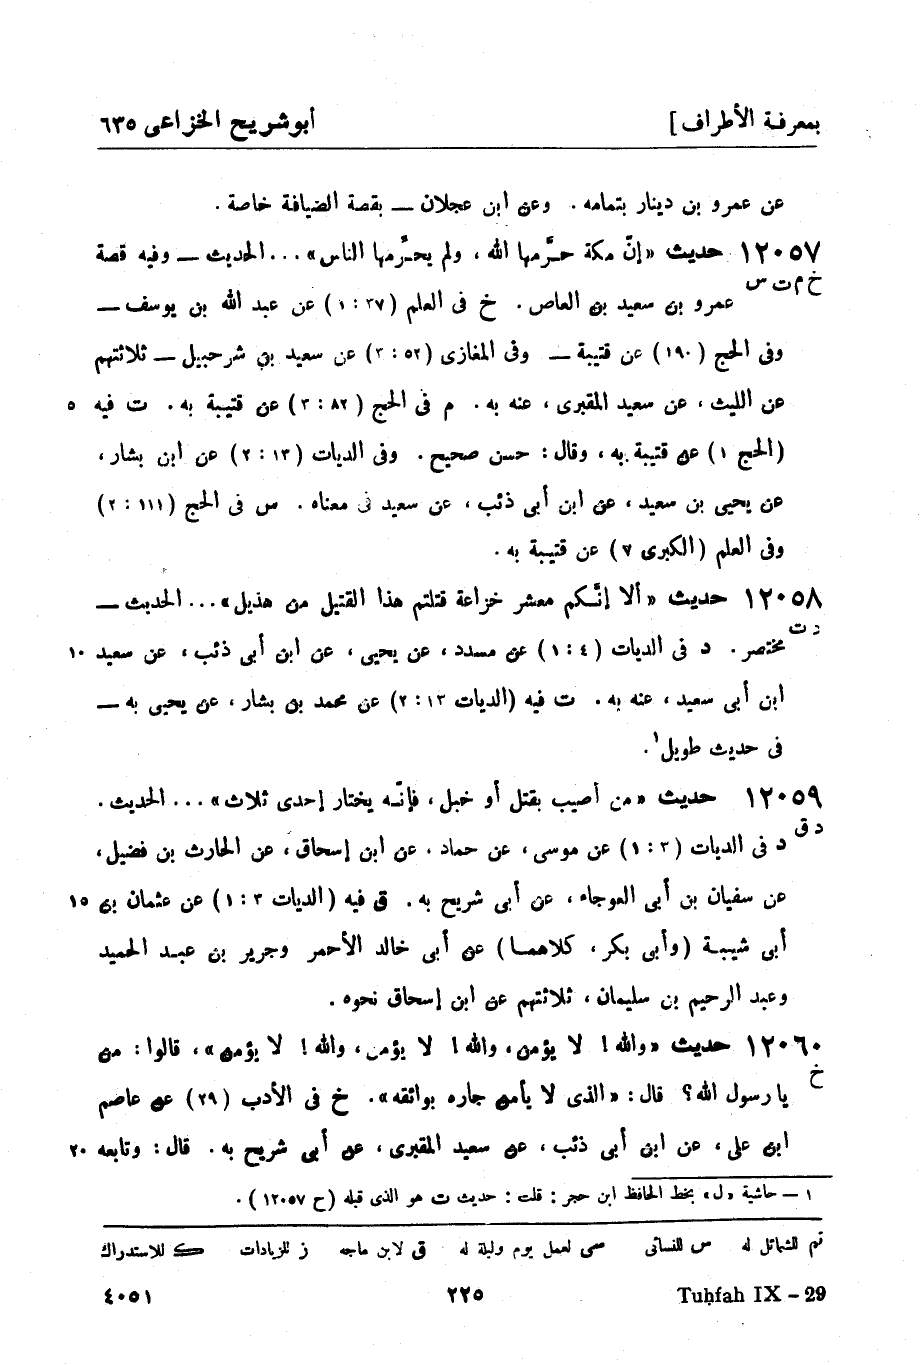 بمعرفة الأطراف] أبو شريح الخزاعى ٦٣٥
عن عمرو بن دينار بتمامه. وعن ابن عجلان — بقصة الضيافة خاصة.
١٢٠٥٧ حديث «إنّ مكة حرَّمها الله، ولم يحرِّمها الناس»...الحديث — وفيه قصة
خ م ت س
عمرو بن سعيد بن العاص. خ فى العلم (٣٧ : ١) عن عبد الله بن يوسف —
وفى الحج (١٩٠) عن قتيبة — وفى المغازى (٥٢ : ٣) عن سعيد بن شرحبيل — ثلاثتهم
عن الليث، عن سعيد المقبرى، عنه به. م فى الحج (٨٢ : ٣) عن قتيبة به. ت فيه ٥
(الحج ١) عن قتيبة به، وقال: حسن صحيح. وفى الديات (١٣ : ٢) عن ابن بشار،
عن يحيى بن سعيد، عن ابن أبى ذئب، عن سعيد فى معناه. س فى الحج (١١١ : ٢)
وفى العلم (الكبرى ٧) عن قتيبة به.
١٢٠٥٨ حديث «ألا إنَّكم معشر خزاعة قتلتم هذا القتيل من هذيل»...الحديث —
د ت
مختصر. د فى الديات (٤ : ١) عن مسدد، عن يحيى، عن ابن أبى ذئب، عن سعيد ١٠
ابن أبى سعيد، عنه به. ت فيه (الديات ١٣ : ٢) عن محمد بن بشار، عن يحيى به —
فى حديث طويل١.
١٢٠٥٩ حديث «من أصيب بقتل أو خبل، فإنّه يختار إحدى ثلاث»...الحديث.
د ق
د فى الديات (٣ : ١) عن موسى، عن حماد. عن ابن إسحاق، عن الحارث بن فضيل،
عن سفيان بن أبى العوجاء، عن أبى شريح به. ق فيه (الديات ٣ : ١) عن عثمان بن ١٥
أبى شيبة (وأبى بكر، كلاهما) عن أبى خالد الأحمر وجرير بن عبد الحميد
وعبد الرحيم بن سليمان، ثلاثتهم عن ابن إسحاق نحوه.
١٢٠٦٠ حديث «والله! لا يؤمن، والله! لا يؤمن، والله! لا يؤمن»، قالوا: من
خ
يا رسول الله؟ قال: «الذى لا يأمن جاره بوائقه». خ فى الأدب (٢٩) عن عاصم
ابن على، عن ابن أبى ذئب، عن سعيد المقبرى، عن أبى شريح به. قال: وتابعه ٢٠
١ — حاشية «ل» بخط الحافظ ابن حجر: قلت: حديث ت هو الذى قبله (ح ١٢٠٥٧).
تم للشمائل له س للنسائى سى لعمل يوم وليلة له ق لابن ماجه ز للزيادات ك للاستدراك
Tuḥfah IX – 29 ٢٢٥ ٤٠٥١